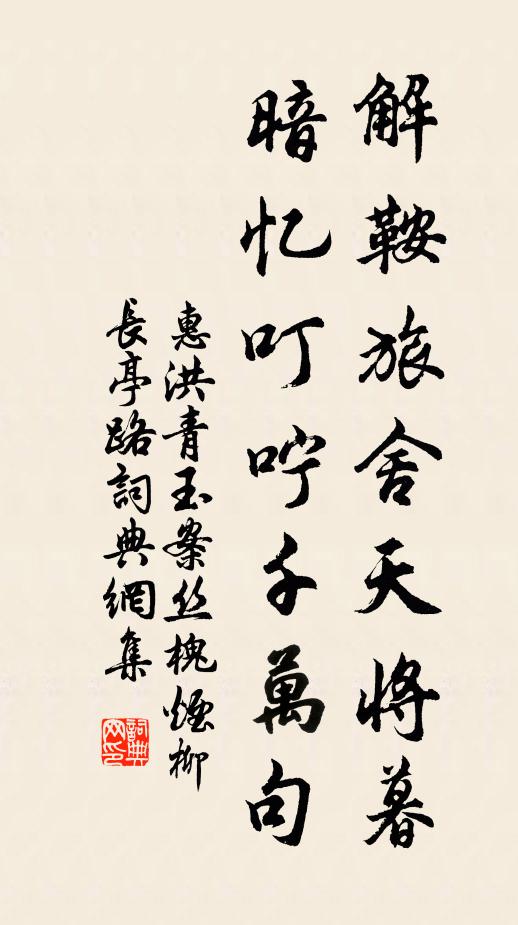 解鞍旅舍天将暮
暗忆叮咛千萬句
惠洪青玉案丝槐煙柳
長亭路詞典網集
詞典网印